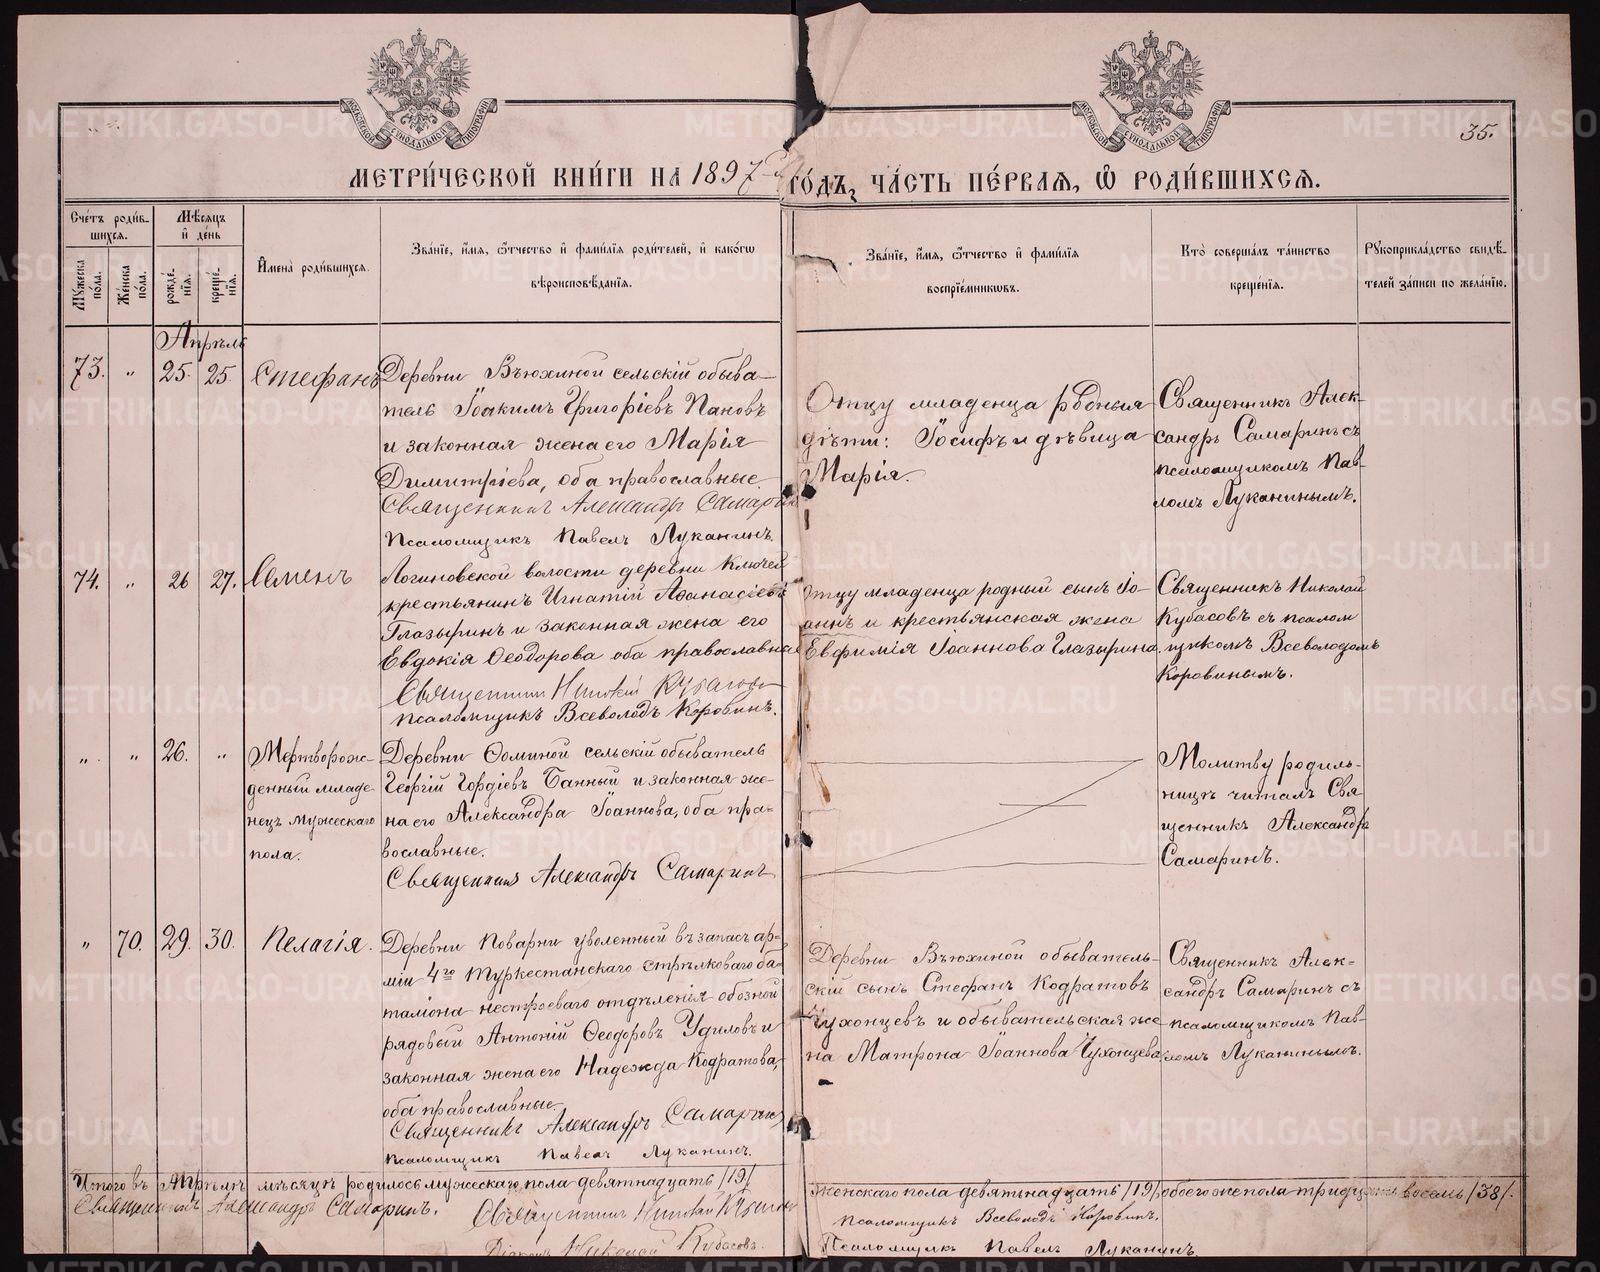 35.
МЕТРИ́ЧЕСКОЙ КНИ́ГИ НА 1897 ГО́ДЪ, ЧА́СТЬ ПЕ́РВАѦ, Ѡ҆ РОДИ́ВШИХСѦ.
Сче́тъ роди́в-
шихсѧ.
Мꙋ́жеска по́ла.
Же́нска по́ла.
Мѣ́сѧцъ
и҆ де́нь
рожде́нїѧ.
креще́нїѧ.
И҆мена̀ роди́вшихсѧ.
Зва́нїе, и҆́мѧ, ѻ҆́тчество и҆ фами́лїѧ роди́телей, и҆ како́гѡ
вѣроисповѣ́данїѧ.
Зва́нїе, и҆́мѧ, ѻ҆́тчество и҆ фами́лїѧ
воспрїе́мникѡвъ.
Кто̀ соверша́лъ та́инство
креще́нїѧ.
Рꙋкоприкла́дство свидѣ́-
телей за́писи по жела́нїю.
Апрѣль
73. „ 25. 25. Стефанъ
Деревни Вьюхиной сельскій обыва-
тель Іоакимъ Григоріевъ Пановъ
и законная жена его Марія
Димитріева, оба православные.
Священникъ Александръ Самаринъ
Псаломщикъ Павелъ Луканинъ.
Отцу младенца родныя
дѣти: Іосифъ и дѣвица
Марія.
Священникъ Алек-
сандръ Самаринъ съ
псаломщикомъ Пав-
ломъ Луканинымъ.
74. „ 26 27. Семенъ
Логиновской волости деревни Ключей
крестьянинъ Игнатій Аѳанасіевъ
Глазыринъ и законная жена его
Евдокія Ѳеодорова оба православные
Священникъ Николай Кубасовъ
псаломщикъ Всеволодъ Коровинъ.
Отцу младенца родный сынъ Іо-
аннъ и крестьянская жена
Евфимія Іоаннова Глазырина
Священникъ Николай
Кубасовъ съ псалом
щикомъ Всеволодомъ
Коровинымъ.
„ „ 26. „
Мертворож-
денный младе-
нецъ мужескаго
пола.
Деревни Ѳоминой сельскій обыватель
Георгій Гордіевъ Банный и законная же-
на его Александра Іоаннова, оба пра-
вославные.
Священникъ Александръ Самаринъ
Молитву родиль-
ницѣ читалъ Свя-
щенникъ Александръ
Самаринъ.
„ 70. 29. 30. Пелагія.
Деревни Поварни уволенный въ запасъ ар-
міи 4го Туркестанскаго стрѣлковаго ба-
таліона нестроеваго отдѣленія обозной
рядовый Антоній Ѳеодоровъ Удиловъ и
законная жена его Надежда Кодратова,
оба православные.
Священникъ Александръ Самаринъ
псаломщикъ Павелъ Луканинъ.
Деревни Вьюхиной обыватель-
скій сынъ Стефанъ Кодратовъ
Чухонцевъ и обывательская же-
на Матрона Іоаннова Чухонцева
Священникъ Алек-
сандръ Самаринъ съ
псаломщикомъ Пав-
ломъ Луканинымъ.
Итого въ Апрѣлѣ мѣсяцѣ родилось мужескаго пола девятнадцать /19/
женскаго пола девятьнадцать /19/ обоего же пола тридцать восемь /38/.
Священникъ Александръ Самаринъ.
Священникъ Николай Кубасовъ
Діаконъ Николай Кубасовъ.
псаломщикъ Всеволодъ Коровинъ.
Псаломщикъ Павелъ Луканинъ.
METRIKI.GASO-URAL.RU